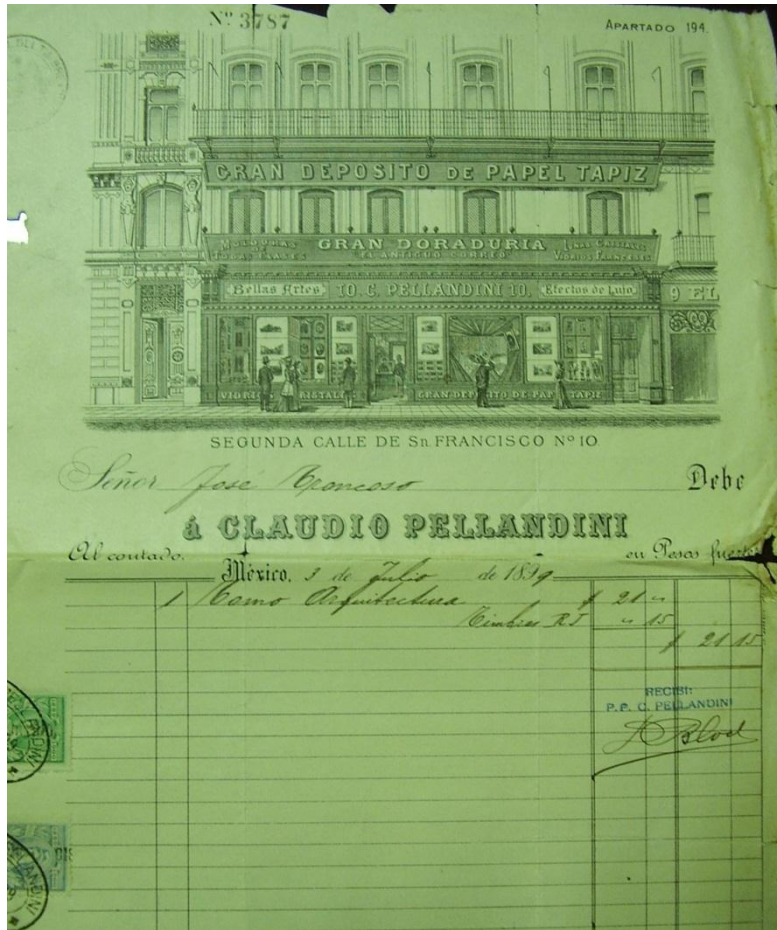 Nº 3787
APARTADO 194.
GRAN DEPOSITO DE PAPEL TAPIZ
MOLDURAS GRAN DORADURIA LUNAS CRISTALES
TODAS CLASES "EL ANTIGUO CORREO" VIDRIOS FRANCESES
Bellas Artes 10. C. PELLANDINI 10. Efectos de Lujo
9 EL
VIDRIOS CRISTALES GRAN DEPOSITO DE PAPEL TAPIZ
SEGUNDA CALLE DE Sn. FRANCISCO Nº 10
Señor José Troncoso Debe
á CLAUDIO PELLANDINI
Al contado. en Pesos fuertes
México, 3 de Julio de 1899
1 Tomo Arquitectura $ 21 "
Timbres " 15
$ 21 15
RECIBI:
P.P. C. PELLANDINI
PELLANDINI
PELLANDINI